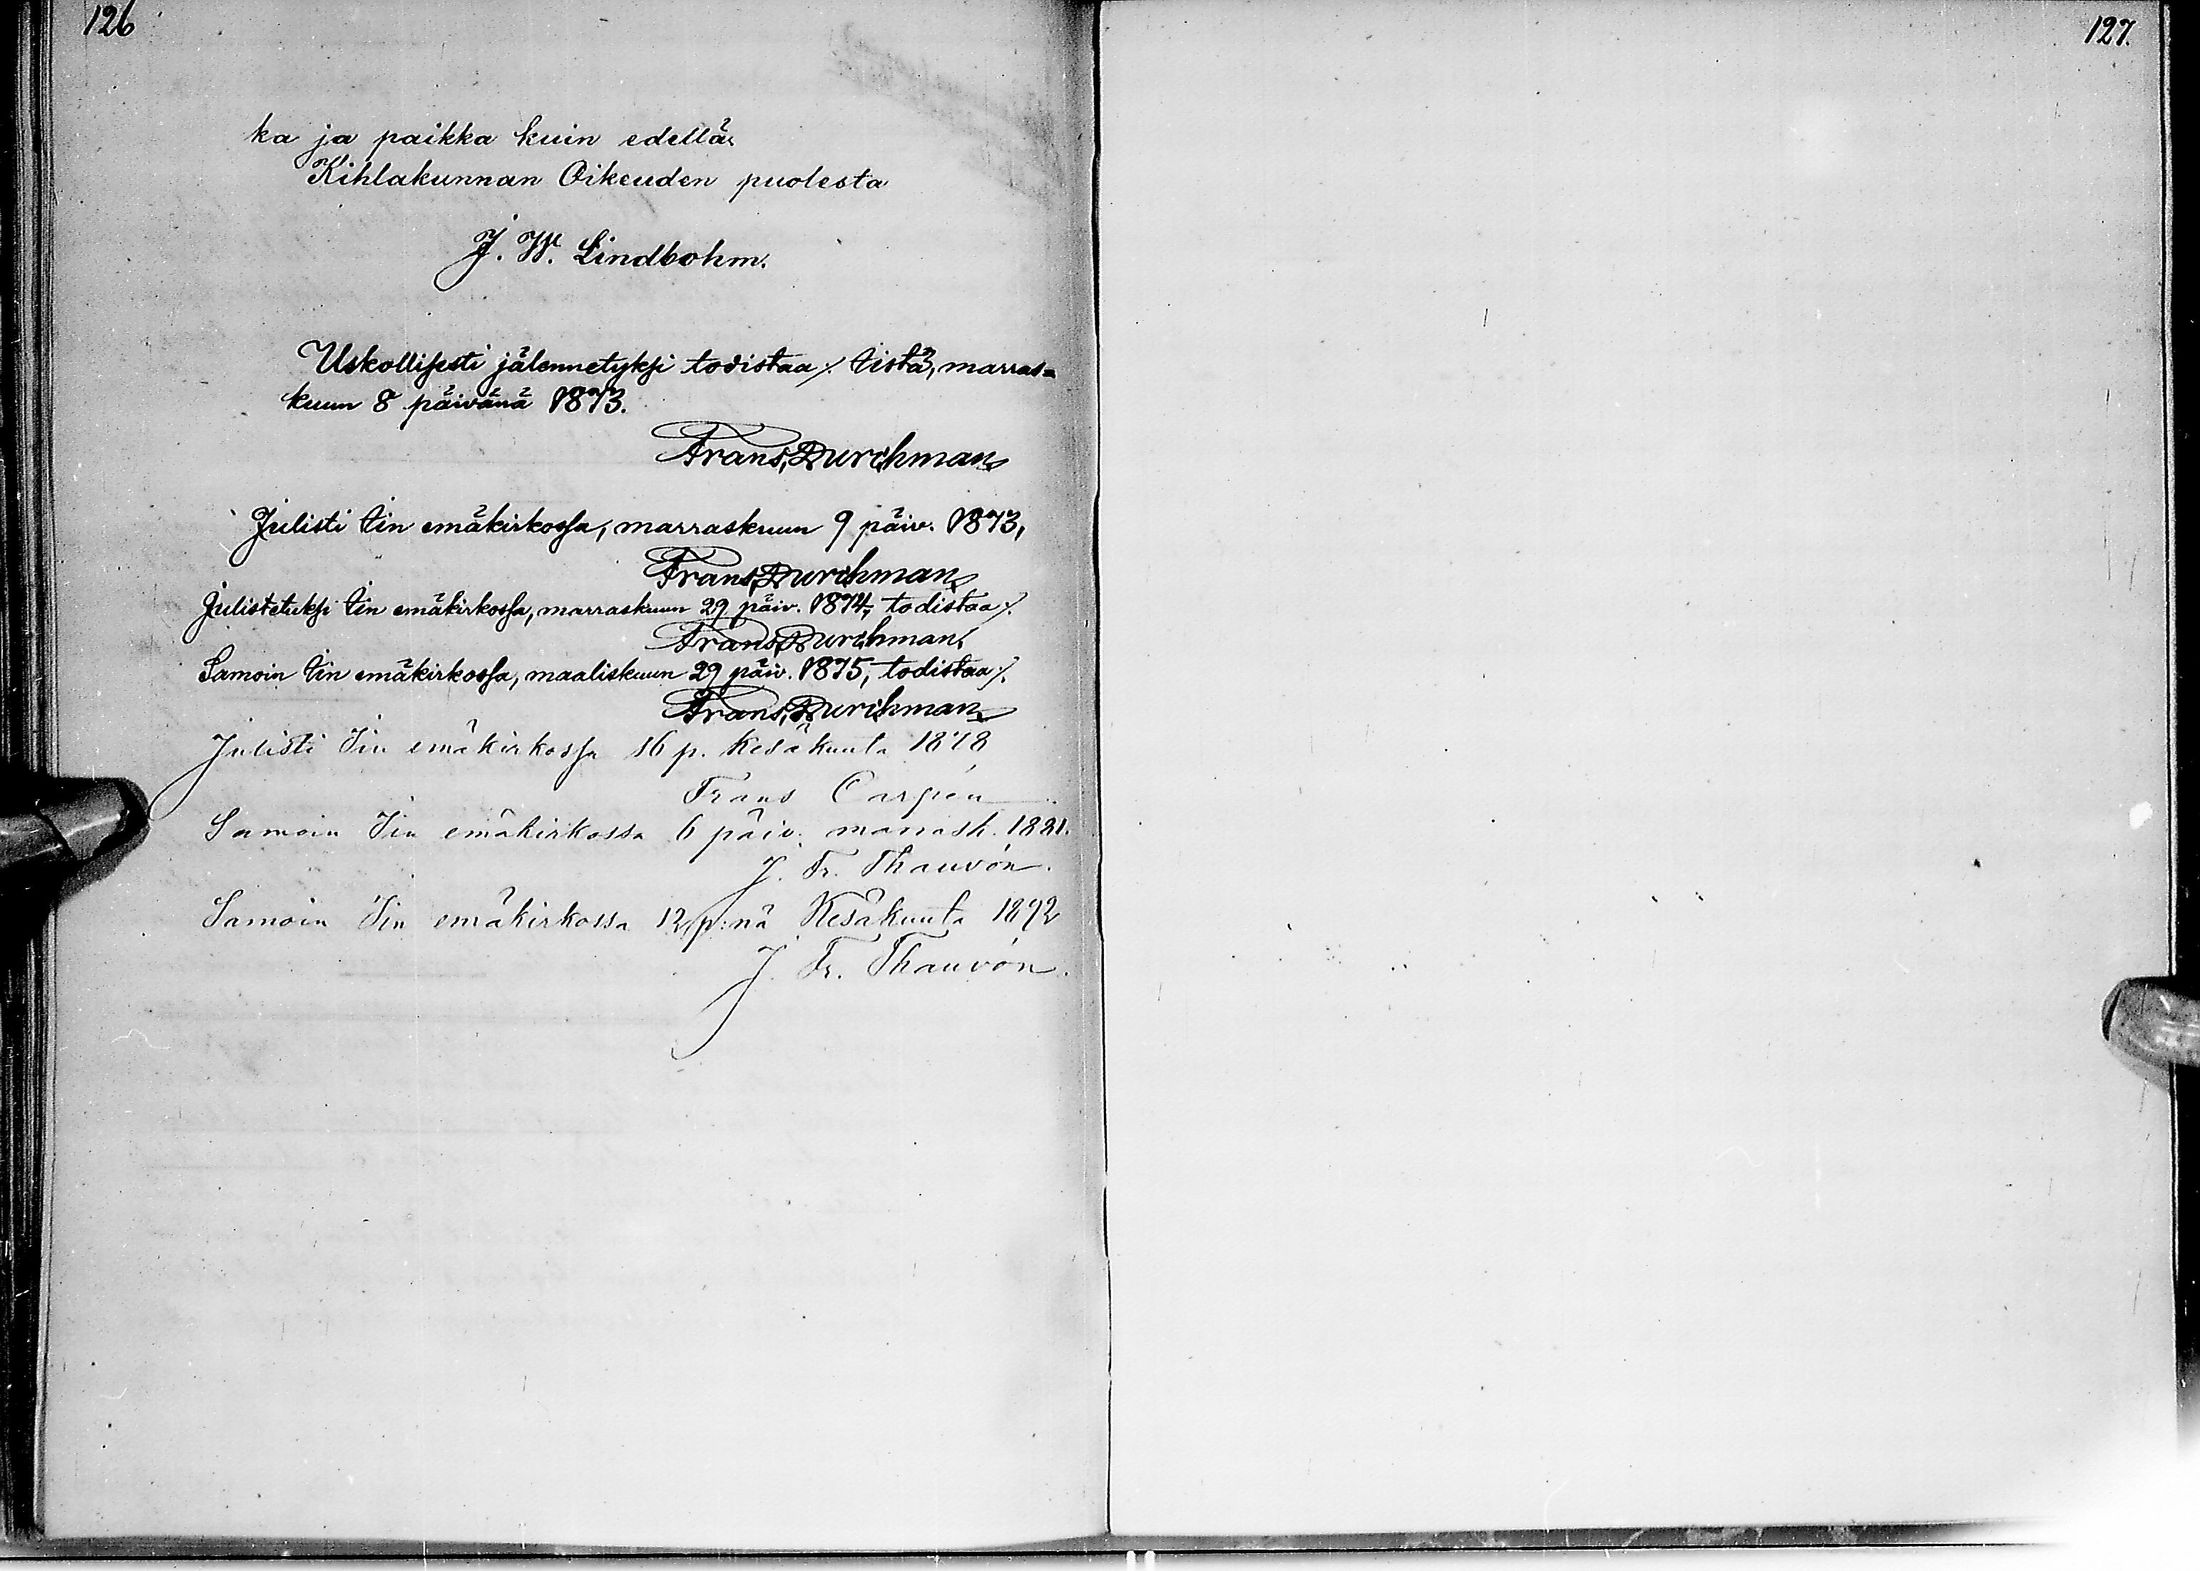 126
127.
ka ja paikka kuin edellä.
Kihlakunnan Oikeuden puolesta
J. W. Lindbohm.
Uskollisesti jälennetyksi todistaa ⁒ Iistä, marras-
kuun 8 päivänä 1873.
Frans Durchman
Julisti Iin emäkirkossa, marraskuun 9 päiv. 1873,
Frans Durchman
Julistetuksi Iin emäkirkossa, marraskuun 29 päiv. 1874, todistaa ⁒
Frans Durchman
Samoin Iin emäkirkossa, maaliskuun 29 päiv. 1875, todistaa ⁒
Frans Durchman
Julisti Iin emäkirkossa 16 p. Kesäkuuta 1878
Frans
Samoin Iin emäkirkossa 6 päiv. marrask. 1881.
J. Fr. Thauvón.
Samoin Iin emäkirkossa 12 p:nä Kesäkuuta 1892
J. Fr. Thauvón.